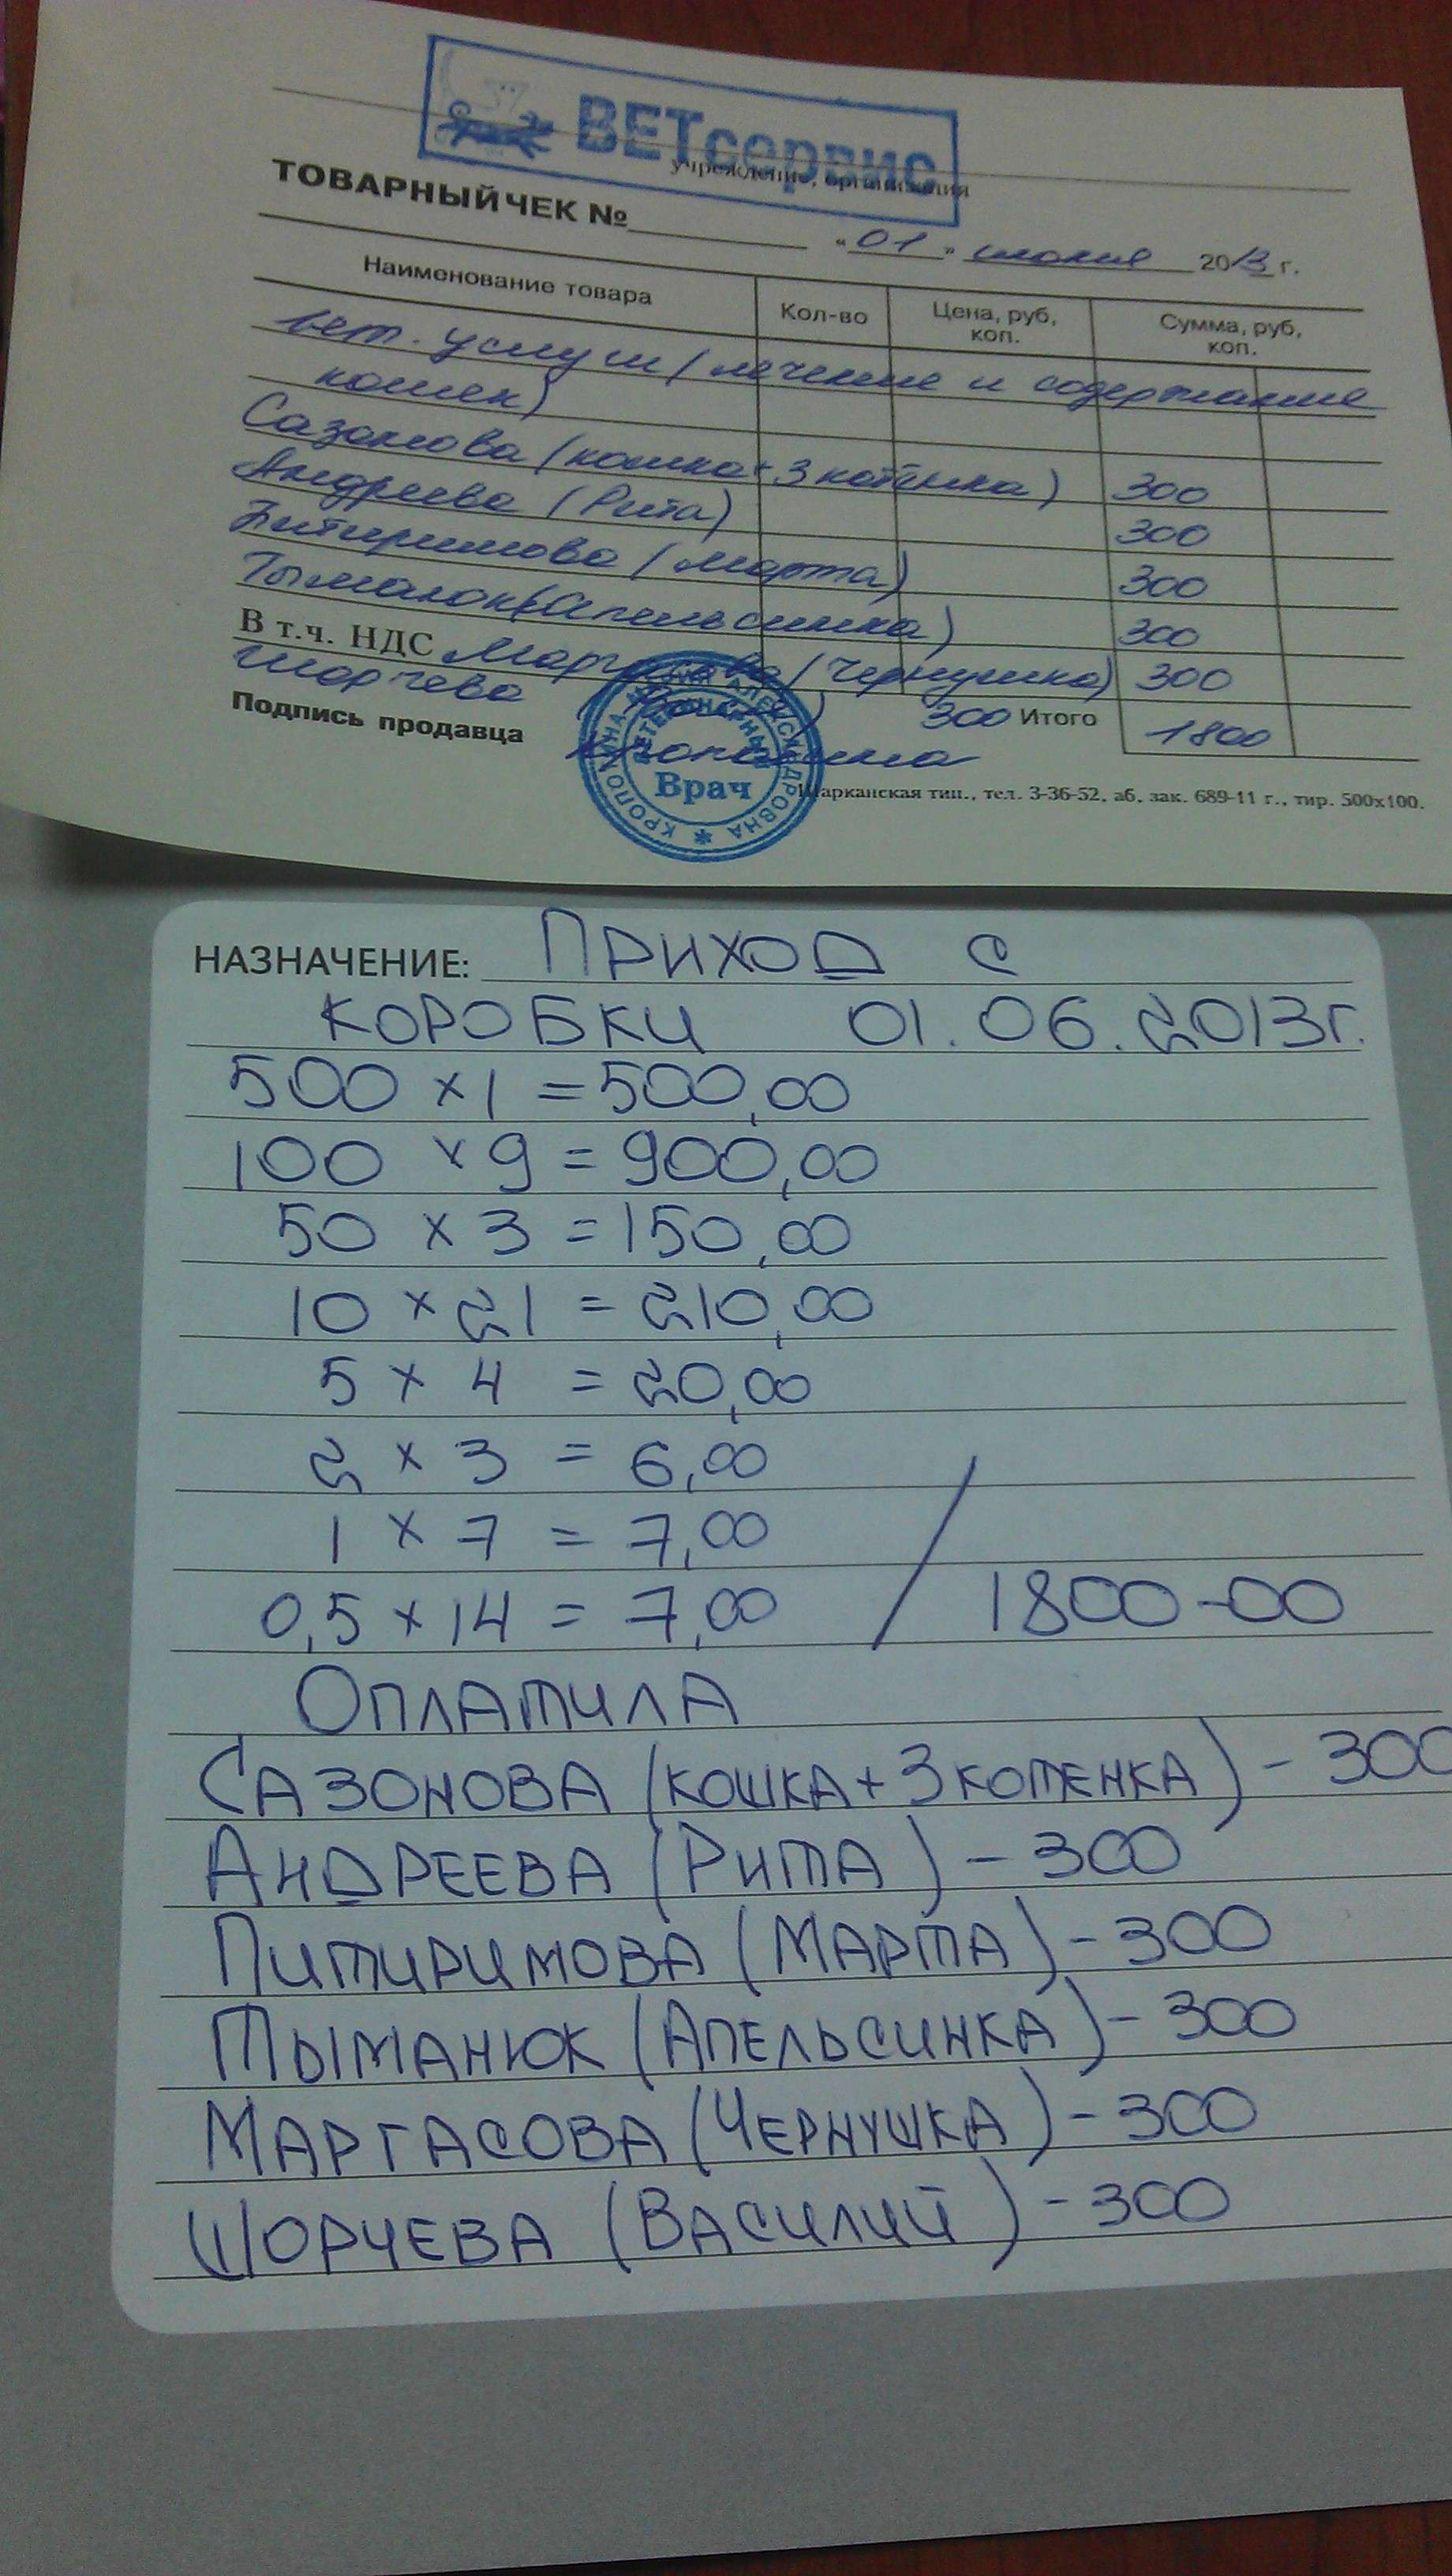 ВЕТсервис
учреждение, организация
ТОВАРНЫЙ ЧЕК № "01" июня 2013 г.
Наименование товара Кол-во Цена, руб, коп. Сумма, руб, коп.
вет. услуги (лечение и содержание
кошек)
Сазонова (кошка + 3 котёнка) 300
Андреева (Рита) 300
Питиримова (Марта) 300
Тыманюк (Апельсинка) 300
В т.ч. НДС Маргасова (Чернушка) 300
Шорчева 300 Итого 1800
Подпись продавца
Врач
Шарканская тип., тел. 3-36-52, аб, зак. 689-11 г., тир. 500х100.
НАЗНАЧЕНИЕ: ПРИХОД С
КОРОБКИ 01.06.2013г.
500 × 1 = 500,00
100 × 9 = 900,00
50 × 3 = 150,00
10 × 21 = 210,00
5 × 4 = 20,00
2 × 3 = 6,00
1 × 7 = 7,00
0,5 × 14 = 7,00 / 1800-00
ОПЛАТИЛА
САЗОНОВА (КОШКА + 3 КОТЕНКА) - 300
АНДРЕЕВА (РИТА) - 300
ПИТИРИМОВА (МАРТА) - 300
ТЫМАНЮК (АПЕЛЬСИНКА) - 300
МАРГАСОВА (ЧЕРНУШКА) - 300
ШОРЧЕВА (ВАСИЛИЙ) - 300